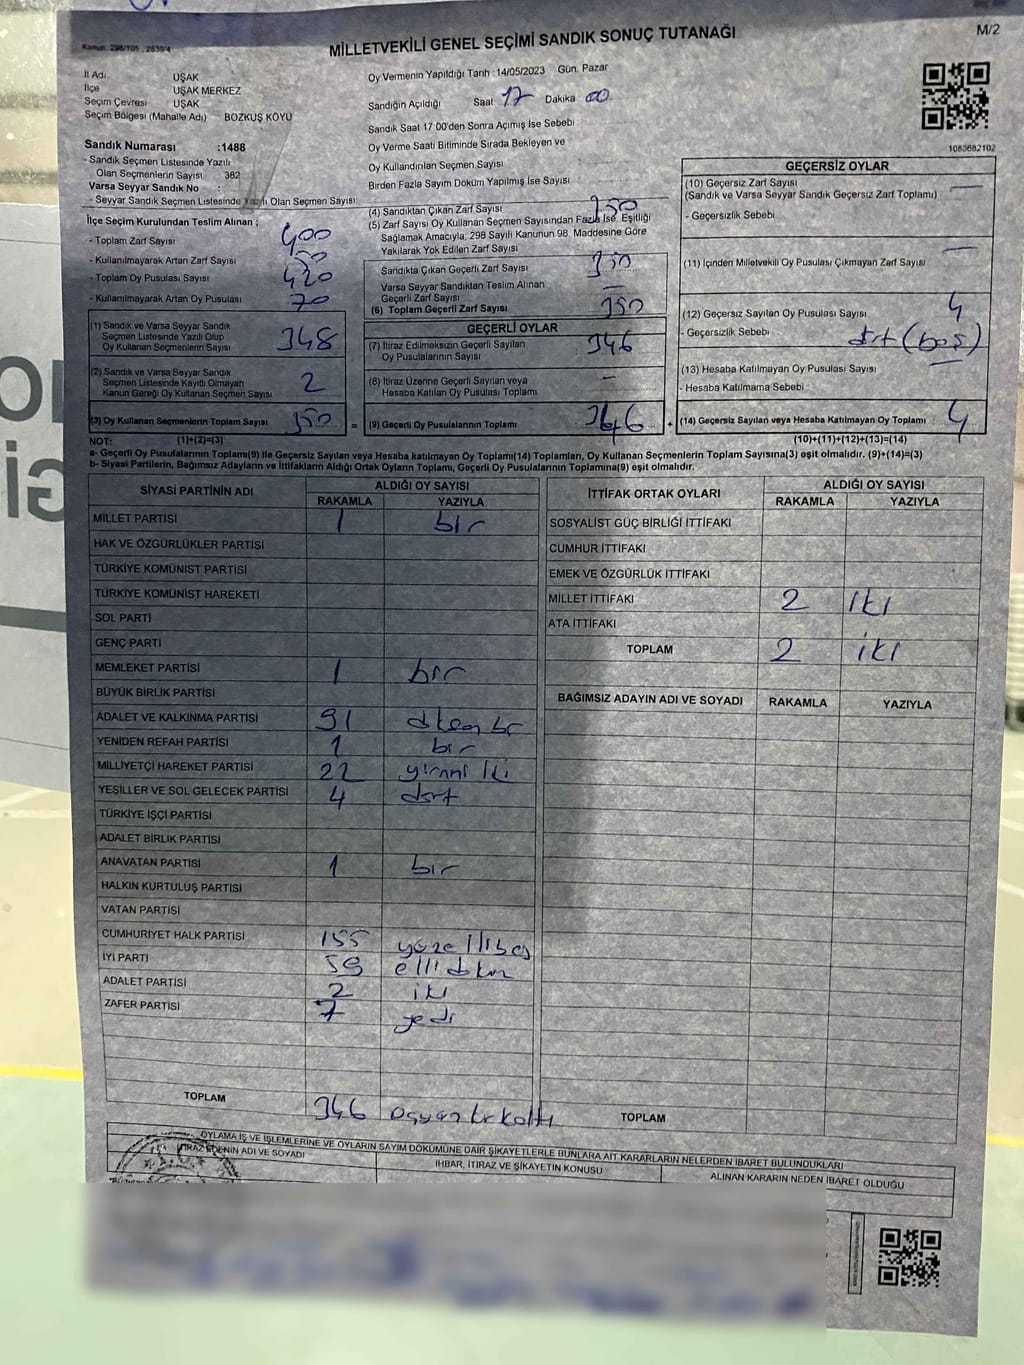 Kanun: 298/105 , 2839/4
MİLLETVEKİLİ GENEL SEÇİMİ SANDIK SONUÇ TUTANAĞI
M/2
İl Adı UŞAK
İlçe UŞAK MERKEZ
Seçim Çevresi UŞAK
Seçim Bölgesi (Mahalle Adı) BOZKUŞ KÖYÜ
Sandık Numarası :1488
- Sandık Seçmen Listesinde Yazılı
Olan Seçmenlerin Sayısı 382
Varsa Seyyar Sandık No :
- Seyyar Sandık Seçmen Listesinde Yazılı Olan Seçmen Sayısı
İlçe Seçim Kurulundan Teslim Alınan ;
- Toplam Zarf Sayısı 400
- Kullanılmayarak Artan Zarf Sayısı 50
- Toplam Oy Pusulası Sayısı 420
- Kullanılmayarak Artan Oy Pusulası 70
(1) Sandık ve Varsa Seyyar Sandık
Seçmen Listesinde Yazılı Olup
Oy Kullanan Seçmenlerin Sayısı 348
(2) Sandık ve Varsa Seyyar Sandık
Seçmen Listesinde Kayıtlı Olmayan
Kanun Gereği Oy Kullanan Seçmen Sayısı 2
(3) Oy Kullanan Seçmenlerin Toplam Sayısı 350
Oy Vermenin Yapıldığı Tarih :14/05/2023 Gün. Pazar
Sandığın Açıldığı Saat 17 Dakika 00
Sandık Saat 17 00'den Sonra Açımış İse Sebebi
Oy Verme Saati Bitiminde Sırada Bekleyen ve
Oy Kullandırılan Seçmen Sayısı
Birden Fazla Sayım Döküm Yapılmış İse Sayısı
(4) Sandıktan Çıkan Zarf Sayısı 350
(5) Zarf Sayısı Oy Kullanan Seçmen Sayısından Fazla İse, Eşitliği
Sağlamak Amacıyla, 298 Sayılı Kanunun 98. Maddesine Göre
Yakılarak Yok Edilen Zarf Sayısı
Sandıkta Çıkan Geçerli Zarf Sayısı 350
Varsa Seyyar Sandıktan Teslim Alınan
Geçerli Zarf Sayısı —
(6) Toplam Geçerli Zarf Sayısı 350
GEÇERLİ OYLAR
(7) İtiraz Edilmeksizin Geçerli Sayılan
Oy Pusulalarının Sayısı 346
(8) İtiraz Üzerine Geçerli Sayılan veya
Hesaba Katılan Oy Pusulası Toplamı —
= (9) Geçerli Oy Pusulalarının Toplamı 346
1083682102
GEÇERSİZ OYLAR
(10) Geçersiz Zarf Sayısı —
(Sandık ve Varsa Seyyar Sandık Geçersiz Zarf Toplamı)
- Geçersizlik Sebebi
(11) İçinden Milletvekili Oy Pusulası Çıkmayan Zarf Sayısı —
(12) Geçersiz Sayılan Oy Pusulası Sayısı 4
- Geçersizlik Sebebi dört (boş)
(13) Hesaba Katılmayan Oy Pusulası Sayısı —
- Hesaba Katılmama Sebebi
+ (14) Geçersiz Sayılan veya Hesaba Katılmayan Oy Toplamı 4
NOT: (1)+(2)=(3) (10)+(11)+(12)+(13)=(14)
a- Geçerli Oy Pusulalarının Toplamı(9) ile Geçersiz Sayılan veya Hesaba Katılmayan Oy Toplamı(14) Toplamları, Oy Kullanan Seçmenlerin Toplam Sayısına(3) eşit olmalıdır. (9)+(14)=(3)
b- Siyasi Partilerin, Bağımsız Adayların ve İttifakların Aldığı Ortak Oyların Toplamı, Geçerli Oy Pusulalarının Toplamına(9) eşit olmalıdır.
SİYASİ PARTİNİN ADI ALDIĞI OY SAYISI
RAKAMLA YAZIYLA
MİLLET PARTİSİ 1 bir
HAK VE ÖZGÜRLÜKLER PARTİSİ
TÜRKİYE KOMÜNİST PARTİSİ
TÜRKİYE KOMÜNİST HAREKETİ
SOL PARTİ
GENÇ PARTİ
MEMLEKET PARTİSİ 1 bir
BÜYÜK BİRLİK PARTİSİ
ADALET VE KALKINMA PARTİSİ 91
YENİDEN REFAH PARTİSİ 1 bir
MİLLİYETÇİ HAREKET PARTİSİ 22 yirmi iki
YEŞİLLER VE SOL GELECEK PARTİSİ 4 dört
TÜRKİYE İŞÇİ PARTİSİ
ADALET BİRLİK PARTİSİ
ANAVATAN PARTİSİ 1 bir
HALKIN KURTULUŞ PARTİSİ
VATAN PARTİSİ
CUMHURİYET HALK PARTİSİ 155
İYİ PARTİ 59 elli dokuz
ADALET PARTİSİ 2 iki
ZAFER PARTİSİ 7 yedi
TOPLAM 346
İTTİFAK ORTAK OYLARI ALDIĞI OY SAYISI
RAKAMLA YAZIYLA
SOSYALİST GÜÇ BİRLİĞİ İTTİFAKI
CUMHUR İTTİFAKI
EMEK VE ÖZGÜRLÜK İTTİFAKI
MİLLET İTTİFAKI 2 iki
ATA İTTİFAKI
TOPLAM 2 iki
BAĞIMSIZ ADAYIN ADI VE SOYADI RAKAMLA YAZIYLA
TOPLAM
OYLAMA İŞ VE İŞLEMLERİNE VE OYLARIN SAYIM DÖKÜMÜNE DAİR ŞİKAYETLERLE BUNLARA AİT KARARLARIN NELERDEN İBARET BULUNDUKLARI
İTİRAZ EDENİN ADI VE SOYADI İHBAR, İTİRAZ VE ŞİKAYETİN KONUSU ALINAN KARARIN NEDEN İBARET OLDUĞU